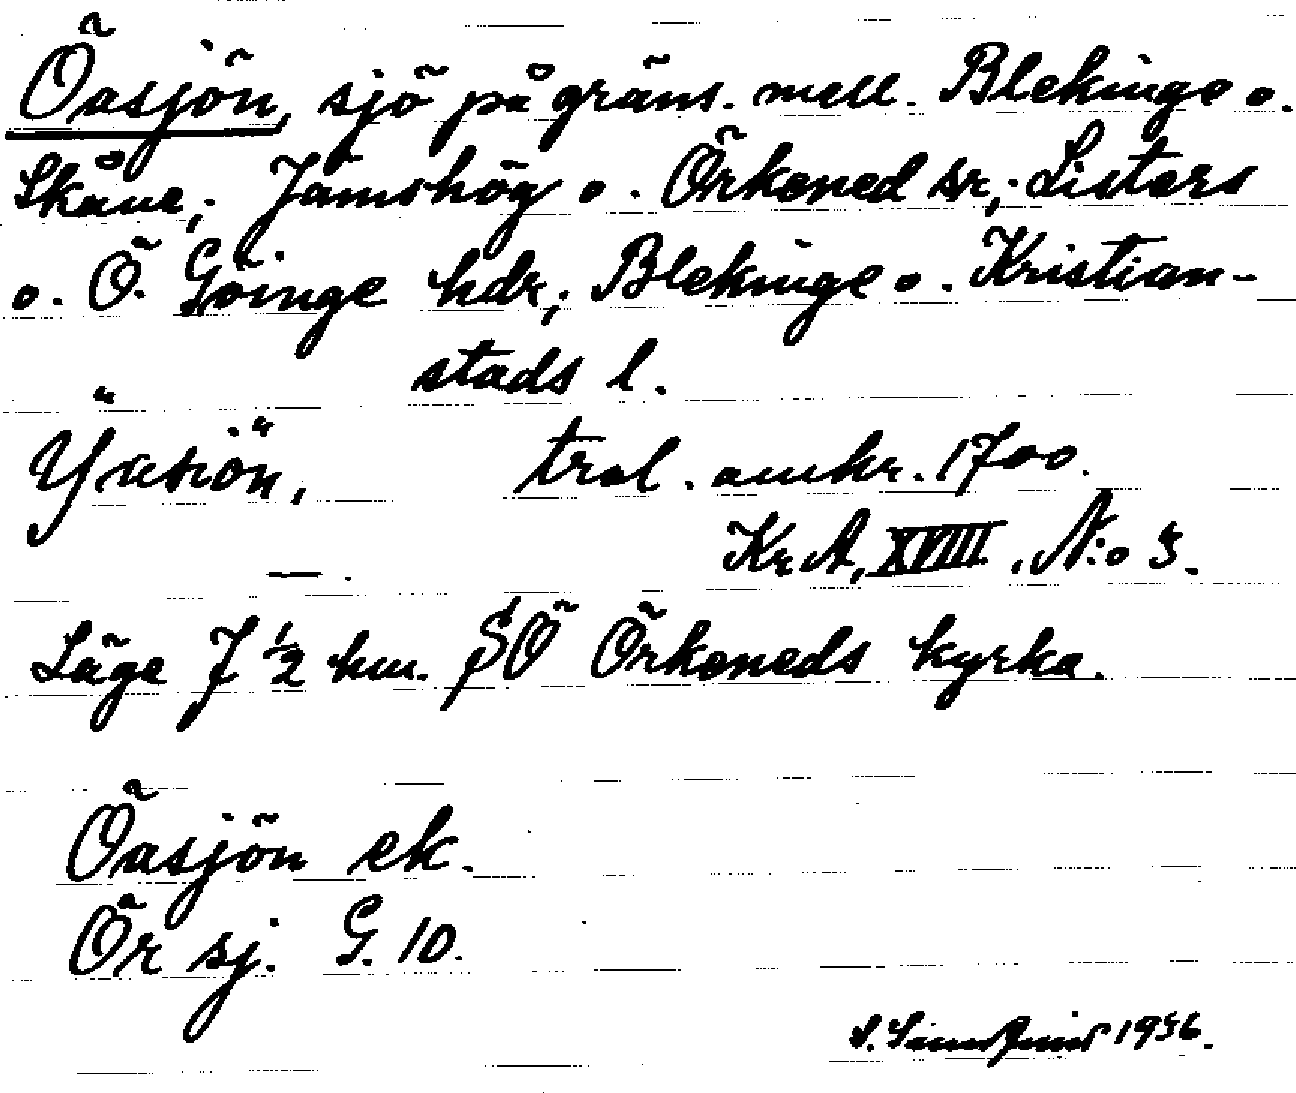 Öasjön, sjö på gräns. mell. Blekinge o.
Skåne; Jämshög o. Örkened sr; Listers
o. Ö. Göinge hdr; Blekinge o. Kristian-
stads l.
trol. omkr. 1700.
Kr A, XVIII, N:o 3.
Läge 7 1/2 km. SÖ Örkeneds kyrka.
Öasjön ek.
Ör sj. G. 10.
1936.